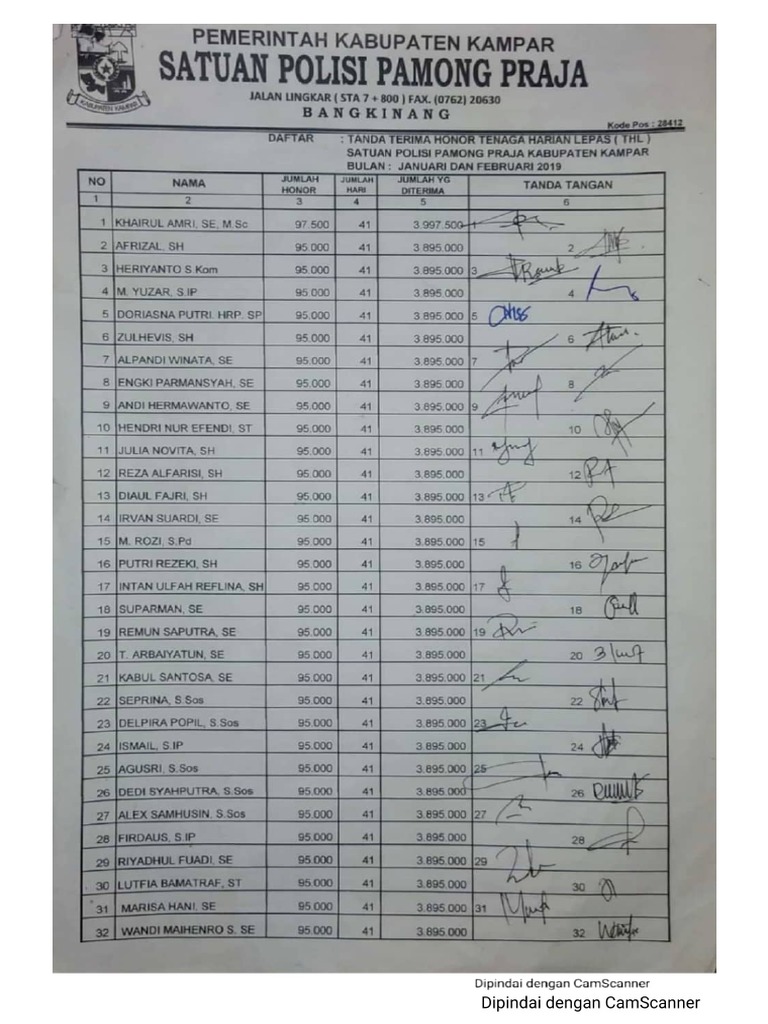 PEMERINTAH KABUPATEN KAMPAR
SATUAN POLISI PAMONG PRAJA
JALAN LINGKAR ( STA 7 + 800 ) FAX. (0762) 20630
BANGKINANG
KABUPATEN KAMPAR
Kode Pos : 28412
DAFTAR : TANDA TERIMA HONOR TENAGA HARIAN LEPAS ( THL )
SATUAN POLISI PAMONG PRAJA KABUPATEN KAMPAR
BULAN : JANUARI DAN FEBRUARI 2019
NO NAMA JUMLAH HONOR JUMLAH HARI JUMLAH YG DITERIMA TANDA TANGAN
1 2 3 4 5 6
1 KHAIRUL AMRI, SE, M.Sc 97.500 41 3.997.500 1
2 AFRIZAL, SH 95.000 41 3.895.000 2
3 HERIYANTO S.Kom 95.000 41 3.895.000 3
4 M. YUZAR, S.IP 95.000 41 3.895.000 4
5 DORIASNA PUTRI. HRP. SP 95.000 41 3.895.000 5
6 ZULHEVIS, SH 95.000 41 3.895.000 6
7 ALPANDI WINATA, SE 95.000 41 3.895.000 7
8 ENGKI PARMANSYAH, SE 95.000 41 3.895.000 8
9 ANDI HERMAWANTO, SE 95.000 41 3.895.000 9
10 HENDRI NUR EFENDI, ST 95.000 41 3.895.000 10
11 JULIA NOVITA, SH 95.000 41 3.895.000 11
12 REZA ALFARISI, SH 95.000 41 3.895.000 12
13 DIAUL FAJRI, SH 95.000 41 3.895.000 13
14 IRVAN SUARDI, SE 95.000 41 3.895.000 14
15 M. ROZI, S.Pd 95.000 41 3.895.000 15
16 PUTRI REZEKI, SH 95.000 41 3.895.000 16
17 INTAN ULFAH REFLINA, SH 95.000 41 3.895.000 17
18 SUPARMAN, SE 95.000 41 3.895.000 18
19 REMUN SAPUTRA, SE 95.000 41 3.895.000 19
20 T. ARBAIYATUN, SE 95.000 41 3.895.000 20
21 KABUL SANTOSA, SE 95.000 41 3.895.000 21
22 SEPRINA, S.Sos 95.000 41 3.895.000 22
23 DELPIRA POPIL, S.Sos 95.000 41 3.895.000 23
24 ISMAIL, S.IP 95.000 41 3.895.000 24
25 AGUSRI, S.Sos 95.000 41 3.895.000 25
26 DEDI SYAHPUTRA, S.Sos 95.000 41 3.895.000 26
27 ALEX SAMHUSIN, S.Sos 95.000 41 3.895.000 27
28 FIRDAUS, S.IP 95.000 41 3.895.000 28
29 RIYADHUL FUADI, SE 95.000 41 3.895.000 29
30 LUTFIA BAMATRAF, ST 95.000 41 3.895.000 30
31 MARISA HANI, SE 95.000 41 3.895.000 31
32 WANDI MAIHENRO S. SE 95.000 41 3.895.000 32
Dipindai dengan CamScanner
Dipindai dengan CamScanner